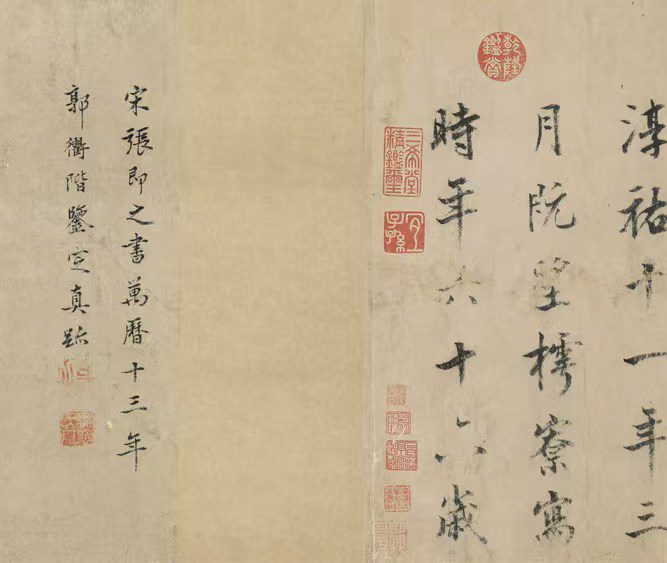 淳祐十一年三
月既望樗寮寫
時年六十六歲
乾隆鑑賞
三希堂精鑑璽
宜子孫
宋張即之書萬曆十三年
郭衢階鑒定真跡